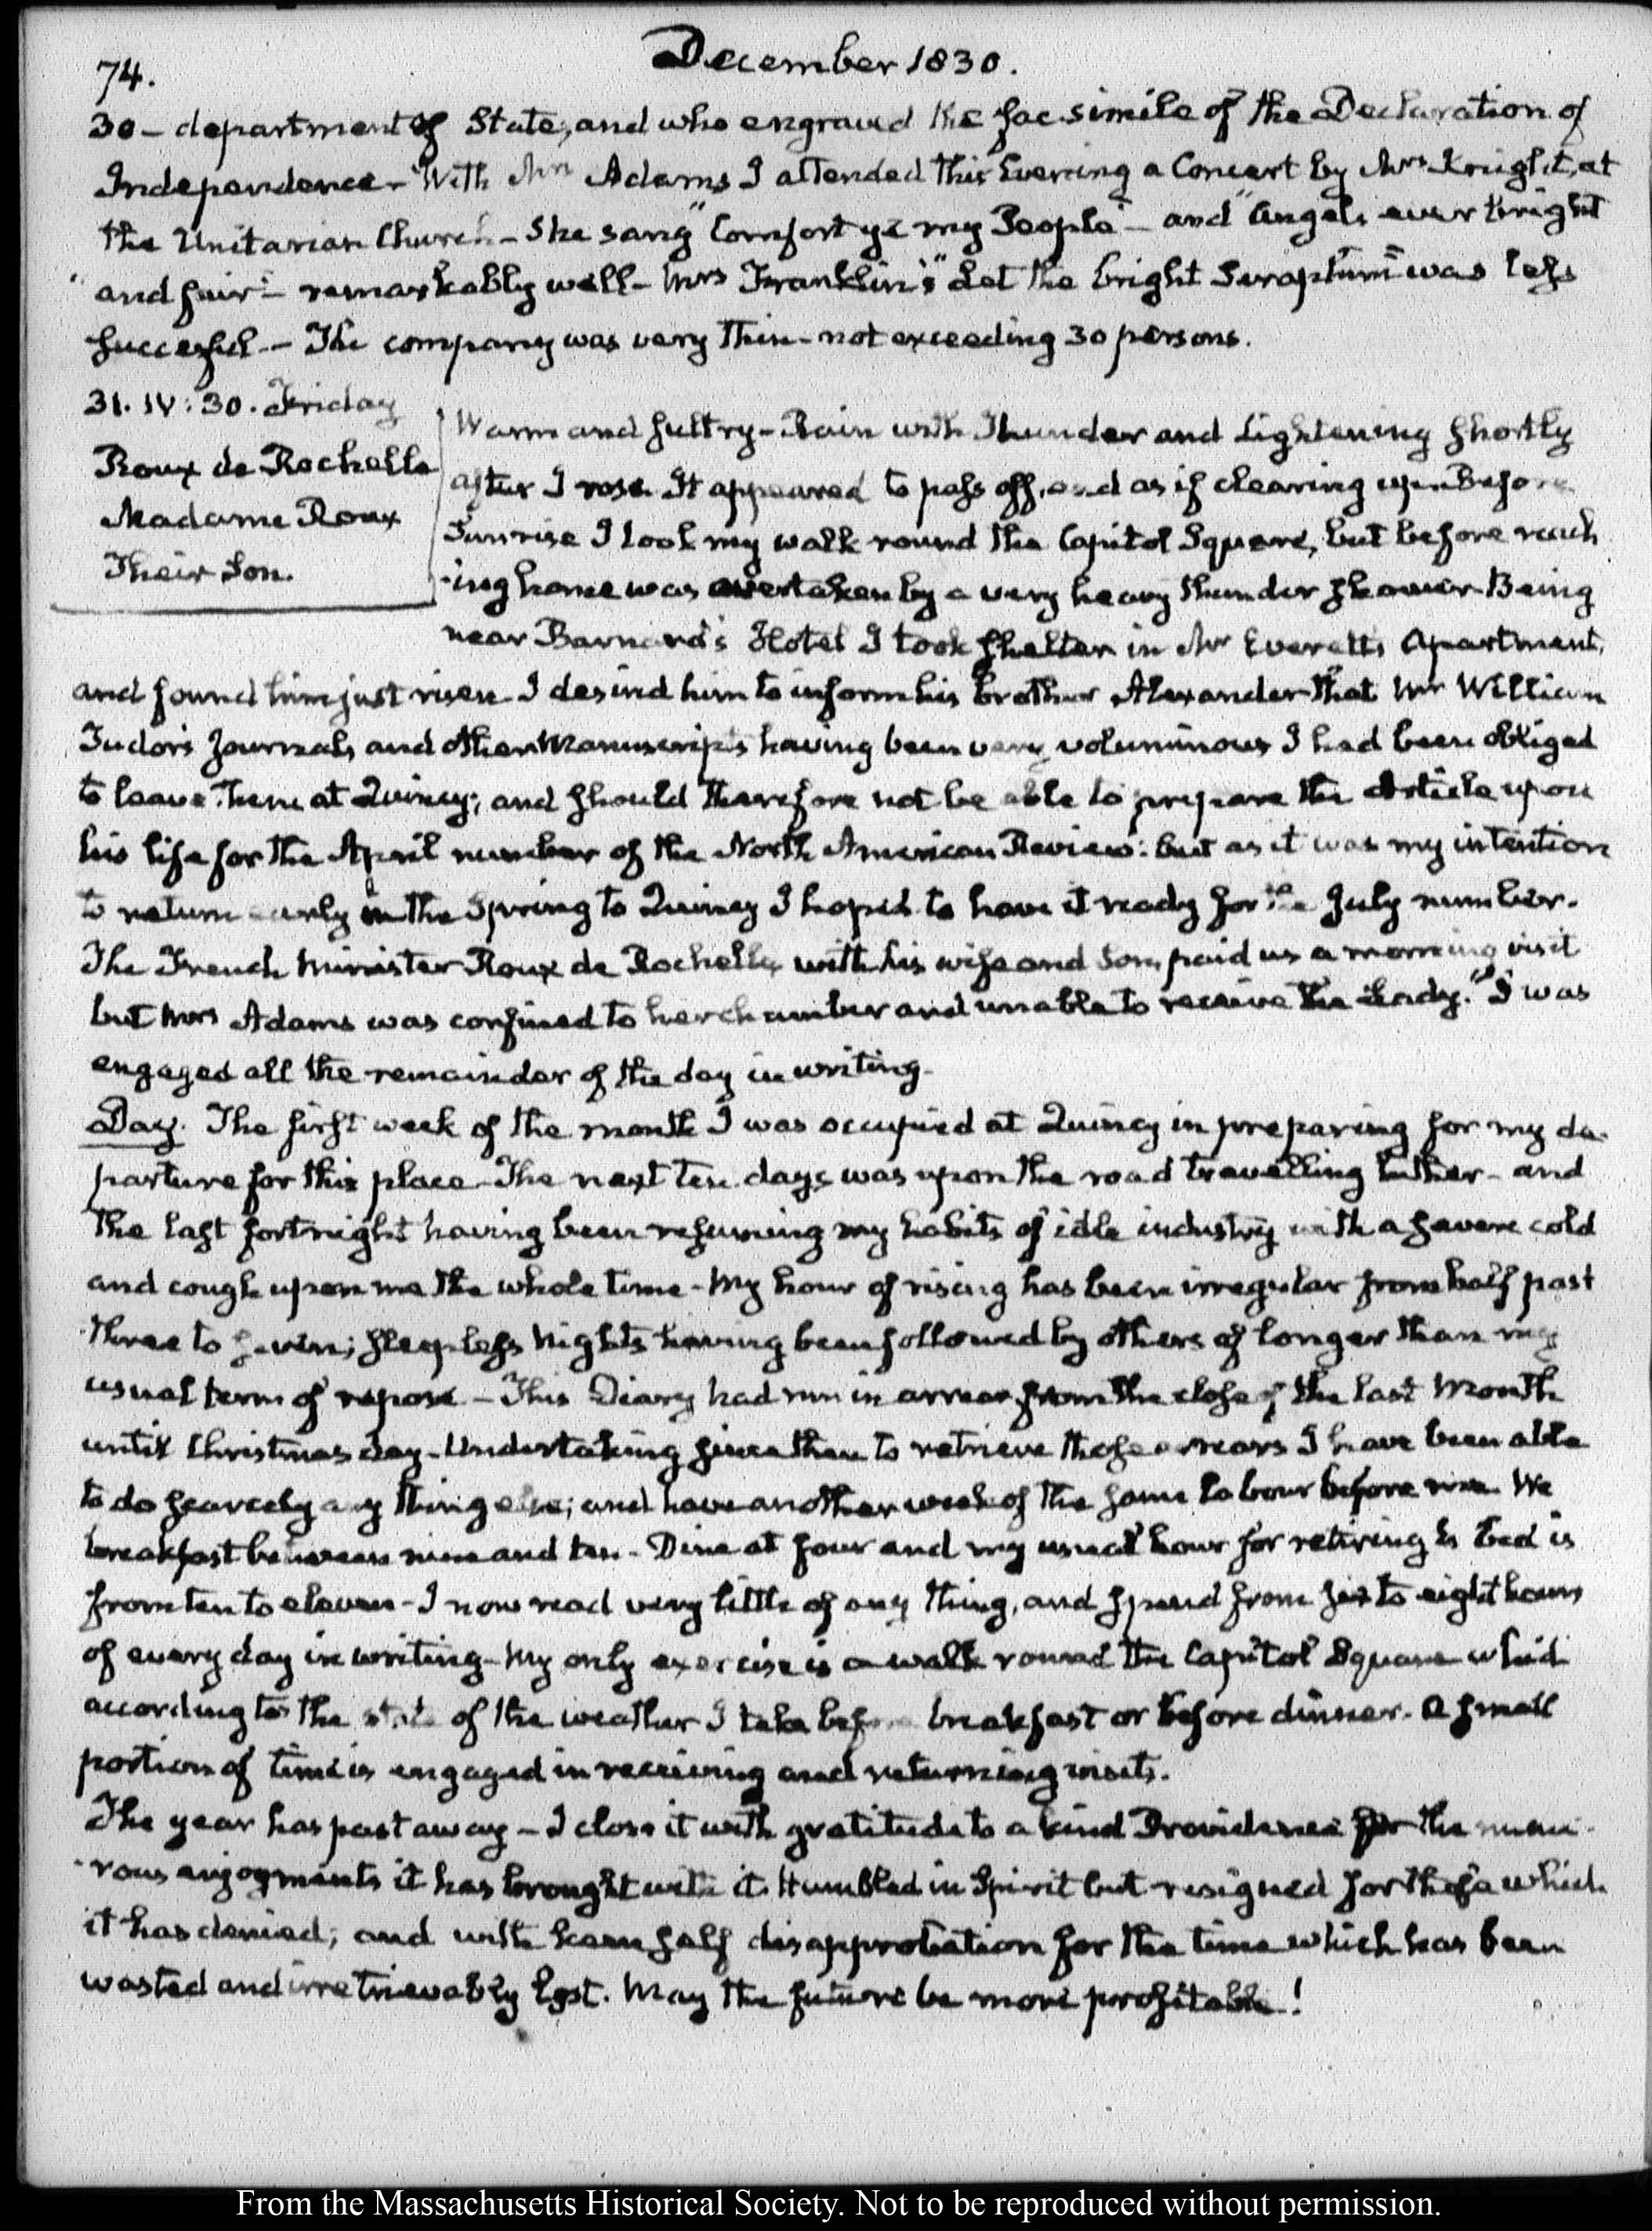 74.
December 1830.
30 - department of State, and who engraved the fac simile of the Declaration of
Independence - With Mrs Adams I attended this Evening a Concert by Mrs Knight, at
the Unitarian Church - She sang "Comfort ye my People" - and "Angels ever bright
"and fair" - remarkably well - Mrs Franklin's "Let the bright Seraphim" was less
successful - The company was very thin - not exceeding 30 persons.
31. IV: 30. Friday
Roux de Rochelle
Madame Roux
Their Son.
Warm and sultry - Rain with Thunder and Lightening shortly
after I rose. It appeared to pass off, and as if clearing up. Before
Sunrise I took my walk round the Capitol Square, but before reach
-ing home was overtaken by a very heavy thunder shower. Being
near Barnard's Hotel I took shelter in Mr Everett's Apartment,
and found him just risen. I desired him to inform his brother Alexander that Mr William
Tudor's Journals and other Manuscripts having been very voluminous I had been obliged
to leave them at Quincy; and should therefore not be able to prepare the Article upon
his life for the April number of the North American Review: but as it was my intention
to return early in the Spring to Quincy I hoped to have it ready for the July number.
The French Minister Roux de Rochelle, with his wife and Son, paid us a morning visit
but Mrs Adams was confined to her chamber and unable to receive the Lady. I was
engaged all the remainder of the day in writing.
Day. The first week of the month I was occupied at Quincy in preparing for my de-
parture for this place - The next ten days was upon the road travelling hither - and
the last fortnight having been resuming my habits of idle industry with a severe cold
and cough upon me the whole time - My hour of rising has been irregular from half past
three to seven; sleepless nights having been followed by others of longer than my
usual term of repose - This Diary had run in arrear from the close of the last Month
until Christmas day - Undertaking since then to retrieve those arrears I have been able
to do scarcely any thing else; and have another week of the same labour before me. We
breakfast between nine and ten - Dine at four and my usual hour for retiring to bed is
from ten to eleven - I now read very little of any thing, and spend from six to eight hours
of every day in writing - My only exercise is a walk round the Capitol Square which
according to the state of the weather I take before breakfast or before dinner. A small
portion of time is engaged in receiving and returning visits.
The year has past away - I close it with gratitude to a kind Providence for the nume-
-rous enjoyments it has brought with it. Humbled in Spirit but resigned for those which
it has denied; and with keen self disapprobation for the time which has been
wasted and irretrievably lost. May the future be more profitable!
From the Massachusetts Historical Society. Not to be reproduced without permission.